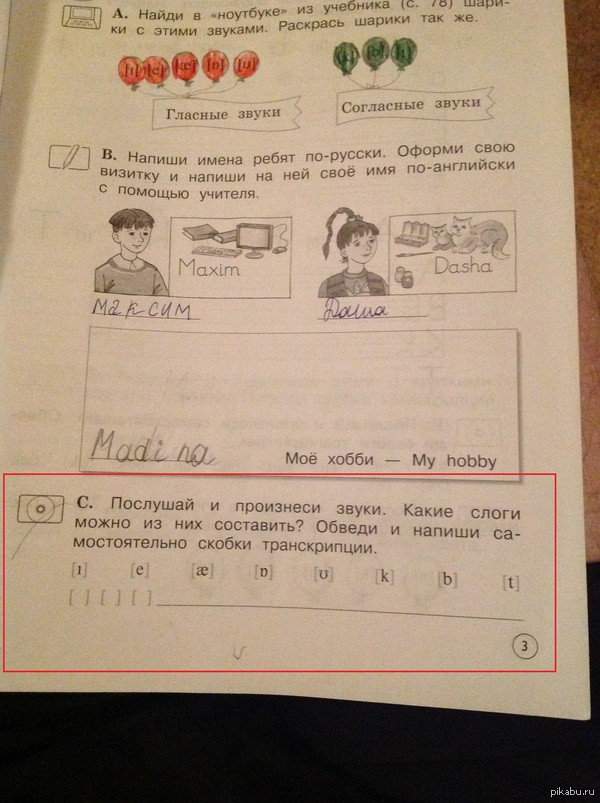 А. Найди в "ноутбуке" из учебника (с. 78) шари-
ки с этими звуками. Раскрась шарики так же.
[ɪ] [e] [æ] [ɒ] [ʊ] [k] [b] [t]
Гласные звуки
Согласные звуки
В. Напиши имена ребят по-русски. Оформи свою
визитку и напиши на ней своё имя по-английски
с помощью учителя.
Maxim
Dasha
Максим
Даша
Madina
Моё хобби — My hobby
С. Послушай и произнеси звуки. Какие слоги
можно из них составить? Обведи и напиши са-
мостоятельно скобки транскрипции.
[ɪ] [e] [æ] [ɒ] [ʊ] [k] [b] [t]
[ ] [ ] [ ]
3
pikabu.ru